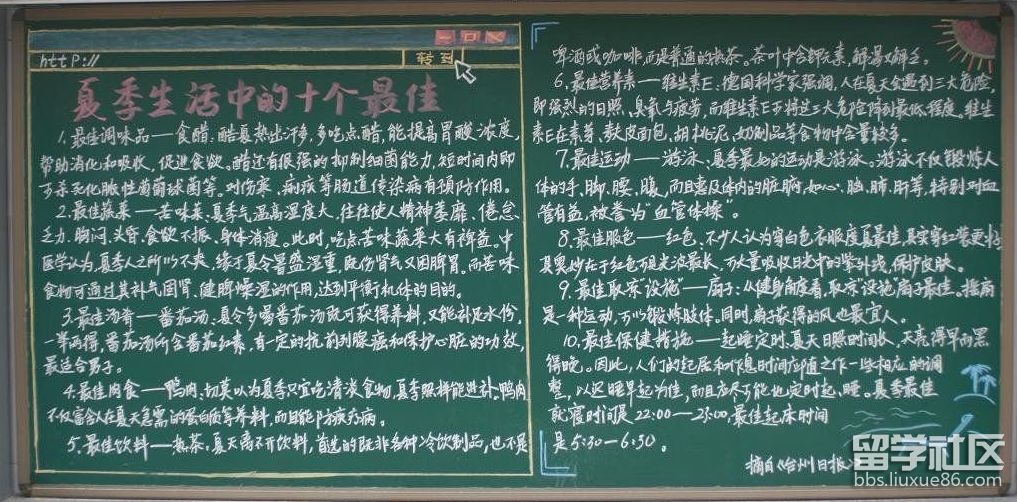 http://
转到
夏季生活中的十个最佳
1.最佳调味品——食醋:酷夏热出汗多,多吃点醋,能提高胃酸浓度,
帮助消化和吸收,促进食欲。醋还有很强的抑制细菌能力,短时间内即
可杀死化脓性葡萄球菌等。对伤寒、痢疾等肠道传染病有预防作用。
2.最佳蔬菜——苦味菜:夏季气温高湿度大,往往使人精神萎靡、倦怠
乏力、胸闷、头昏、食欲不振、身体消瘦。此时,吃点苦味蔬菜大有裨益。中
医学认为,夏季人之所以不爽,缘于夏令暑盛湿重,既伤肾气又困脾胃,而苦味
食物可通过其补气固肾、健脾燥湿的作用,达到平衡机体的目的。
3.最佳汤肴——番茄汤:夏令多喝番茄汤既可获得养料,又能补足水份,
一举两得,番茄汤所含番茄红素,有一定的抗前列腺癌和保护心脏的功效,
最适合男子。
4.最佳肉食——鸭肉:切莫以为夏季只宜吃清淡食物,夏季照样能进补。鸭肉
不仅富含人在夏天急需的蛋白质等养料,而且能防疾疗病。
5.最佳饮料——热茶:夏天离不开饮料,首选的既非各种冷饮制品,也不是
啤酒或咖啡,而是普通的热茶。茶叶中含钾元素,解暑又解乏。
6.最佳营养素——维生素E:德国科学家强调,人在夏天会遇到三大危险,
即强烈的日照、臭氧与疲劳,而维生素E可将这三大危险降到最低程度。维生
素E在麦芽、麸皮面包、胡桃泥、奶制品等食物中含量较多。
7.最佳运动——游泳:夏季最好的运动是游泳。游泳不仅锻炼人
体的手、脚、腰、腹,而且惠及体内的脏腑,如心、脑、肺、肝等,特别对血
管有益,被誉为"血管体操"。
8.最佳服色——红色:不少人认为穿白色衣服度夏最佳,其实穿红装更好,
其奥妙在于红色可见光波最长,可大量吸收日光中的紫外线,保护皮肤。
9.最佳取凉设施——扇子:从健身角度看,取凉设施扇子最佳。摇扇
是一种运动,可以锻炼肢体,同时,扇子获得的风也最宜人。
10.最佳保健措施——起睡定时:夏天日照时间长,天亮得早而黑
得晚。因此,人们的起居和作息时间应随之作一些相应的调
整,以迟睡早起为佳,而且应尽可能也定时起、睡。夏季最佳
就寝时间是22:00—23:00,最佳起床时间
是5:30—6:30。
摘自《台州日报》
留学社区
bbs.liuxue86.com